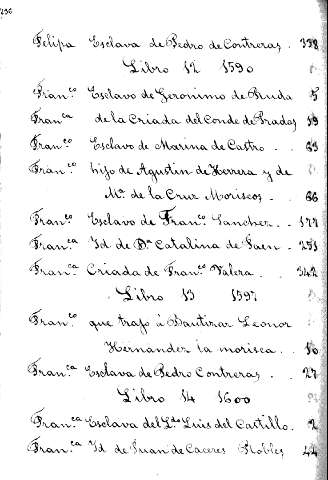 Felipa Esclava de Pedro de Contreras. 338
Libro 12 1590
Fran.co Esclavo de Geronimo de Rueda 5
Fran.ca de la Criada del Conde de Prados 19
Fran.co Esclavo de Marina de Castro. 63
Fran.co hijo de Agustin de Herrera y de
M.a de la Cruz Moriscos. 66
Fran.co Esclavo de Fran.co Sanchez. 177
Fran.ca Id de D.a Catalina de Jaen. 251
Fran.ca Criada de Fran.co Valera. 342
Libro 13 1597
Fran.co que trajo à Bautizar Leonor
Hernandez la morisca. 10
Fran.ca Esclava de Pedro Contreras. 27
Libro 14 1600
Fran.ca Esclava del L.do Luis del Castillo. 2
Fran.ca Id de Juan de Caceres Robles 44